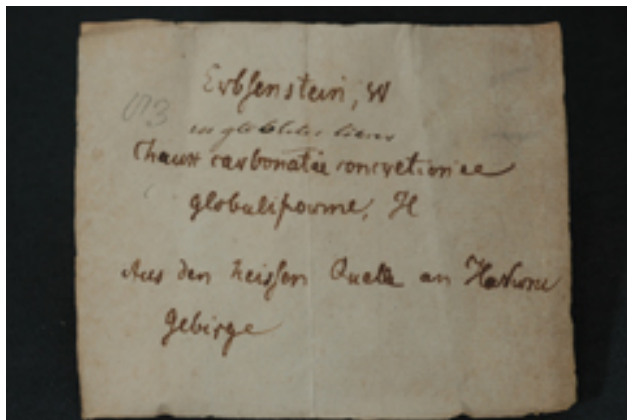 Erbsenstein, W
Chaux carbonatée concretionée
globuliforme, H
Aus den heissen Quelle an
gebirge